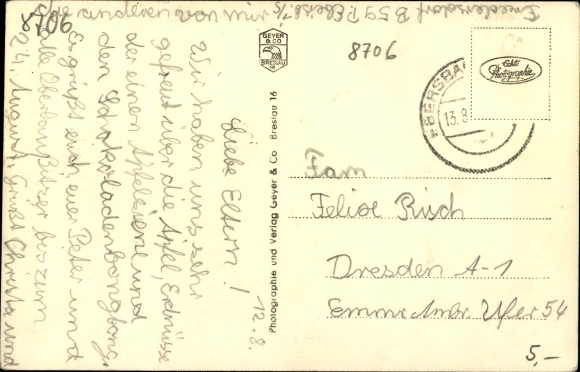 8706
Liebe Eltern!
12.8.
Wir haben uns sehr
gefreut über die Äpfel, Erdnüsse
der einen Apfelsiene und
den Schokoladenbongbong.
Es grüßt euch euer Peter und
alle Oberlaußitzer bis zum
24. August. Grüßt Christa und
die anderen von mir
GEYER
& CO
BRESLAU
16
Photographie und Verlag Geyer & Co Breslau 16
8706
Echte
Photographie
EBERSBA
13.8
Fam
Felix Risch
Dresden A-1
Ufer 54
5,-